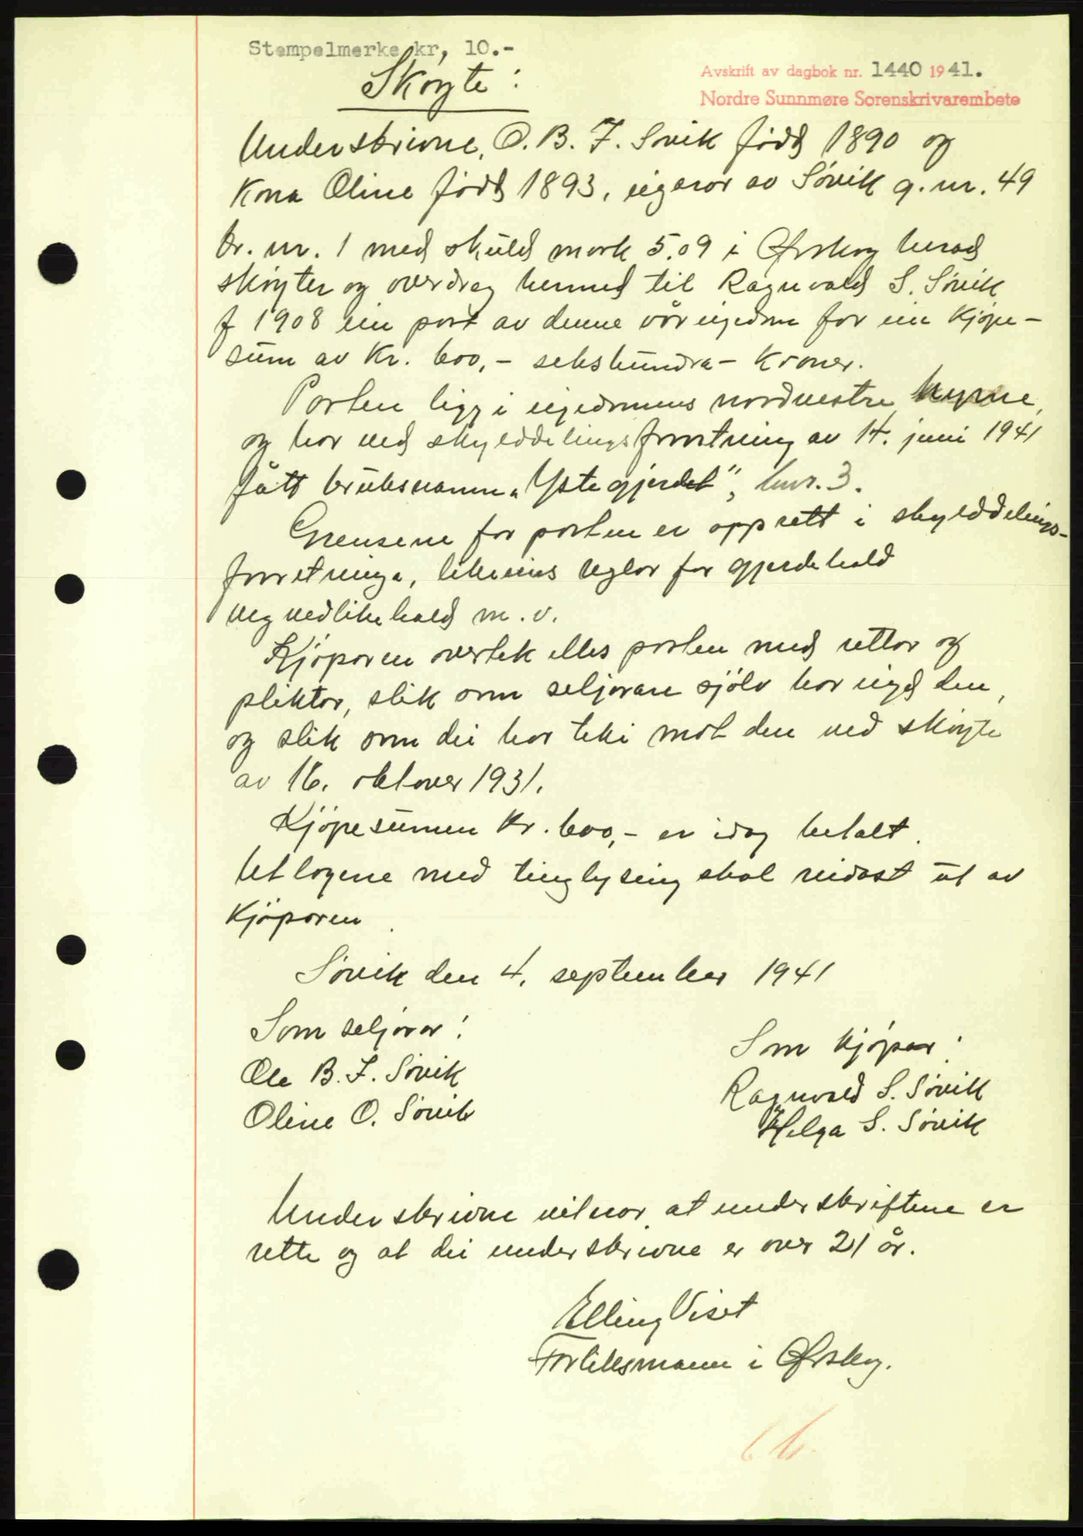 Stempelmerke kr, 10.-
Avskrift av dagbok nr. 1440 1941.
Nordre Sunnmøre Sorenskrivarembete
Skøyte:
Underskrivne, O. B. F. Søvik född 1890 og
Kona Oline född 1893, eigarar av Søvik g. nr. 49
br. nr. 1 med skuld mark 5.09 i Ørskog herad
skøyter og overdrag hermed til Ragnvald S. Søvik
f 1908 ein part av denne vår eigedom for ein kjøpe-
sum av Kr. 600,- sekshundra- Kroner.
Parten ligg i eigedomens nordvestre hyrne,
og har ved skylddelingsforretning av 14. juni 1941
fått bruksnamn "Ystegjerdet", bnr. 3.
Grensene for parten er opprett i skylddelings-
forretninga, likeeins reglar for gjerdehald
veg vedlikehald m. v.
Kjøparen overtek elles parten med rettar og
pliktar, slik som seljarane sjølv har eigd den,
og slik som dei har teki mot den ved skøyte
av 16. oktover 1931.
Kjøpesumen Kr. 600,- er idag betalt.
Utlogene med tinglysing skal reidast ut av
Kjøparen.
Søvik den 4. september 1941
Som seljarar:
Som kjøpar:
Ole B. F. Søvik
Ragnvald S. Søvik
Oline O. Søvik
Helga S. Søvik
Underskrivne vitnar at underskriftene er
rette og at dei underskrivne er over 21 år.
Elling Viset
Forliksmann i Ørskog.